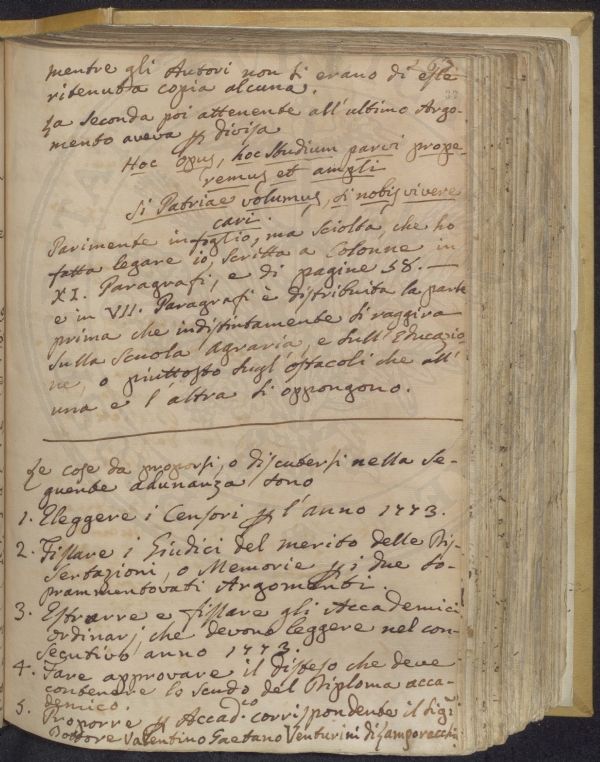 mentre gli Autori non si erano di esse
ritenuta copia alcuna.
La seconda poi attenente all'ultimo Argo-
mento aveva p divisa
Hoc opus, hoc studium parvi prope-
remus et ampli
Si Patriae volumus, si nobis vivere
cari.
Parimente in foglio, ma sciolta, che ho
fatta legare io, scritta a Colonne in
XI. Paragrafi, e di pagine 58. —
e in VII. Paragrafi è distribuita la parte
prima che indistintamente si raggira
sulla Scuola Agraria, e sull'Educazio-
ne, o piuttosto sugl'ostacoli che all'
una e l'altra si oppongono.
Le cose da proporsi, o discutersi nella Se-
guente adunanza sono
1. Eleggere i Censori p l'anno 1773.
2. Fissare i Giudici del merito delle Dis-
sertazioni, o Memorie p i due so-
prammentovati Argomenti
3. Estrarre e fissare gli Accademici
ordinarj che devono leggere nel con-
secutivo anno 1773.
4. Fare approvare il disteso che deve
contenere lo scudo del Diploma acca-
demico.
5. Proporre p Accad.co corrispondente il Sig.
Dottore Valentino Gaetano Venturini di